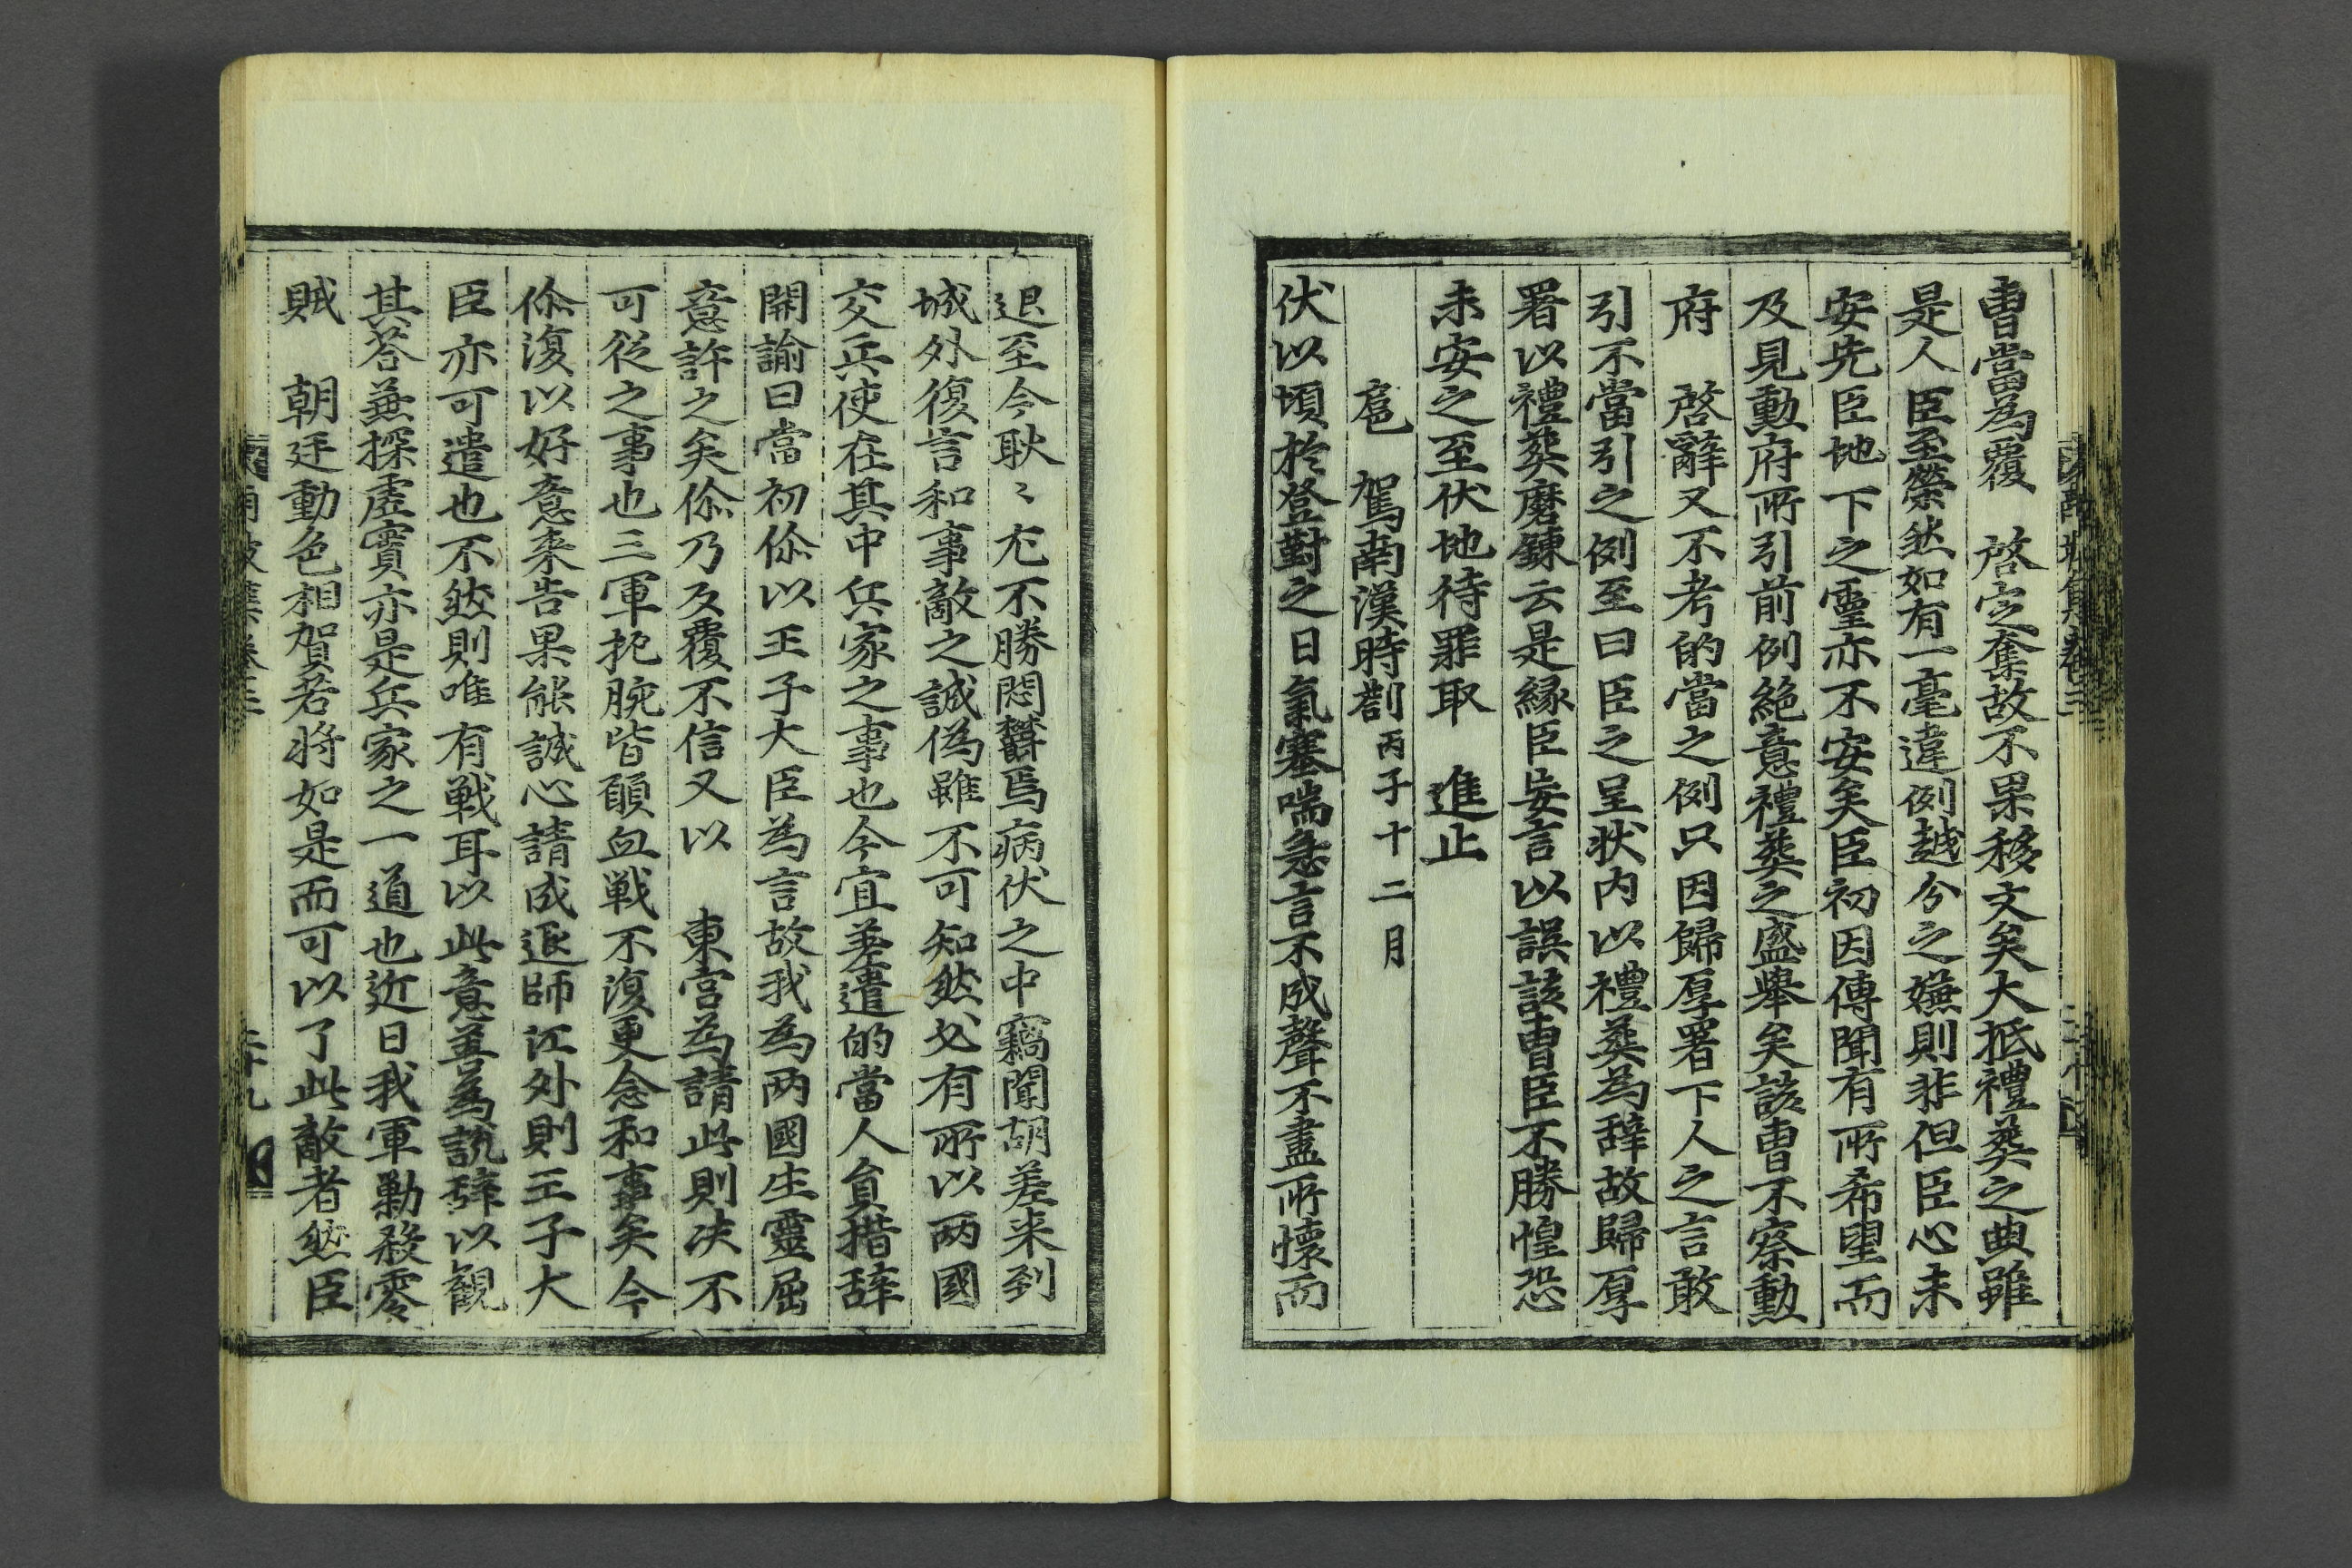 曺當為覆　啓㝎奪故不果移文矣大抵禮葬之典雖
是人臣至榮然如有一毫違例越分之嫌則非但臣心未
安先臣地下之靈亦不安矣臣初因傳聞有所希望而
及見勳府所引前例絶意禮葬之盛舉矣該曺不察勳
府　啓辭又不考的當之例只因歸厚署下人之言敢
引不當引之例至曰臣之呈狀内以禮葬為辞故歸厚
署以禮葬磨鍊云是緣臣妄言以誤該曺臣不勝惶恐
未安之至伏地待罪取　進止
扈　駕南漢時劄丙子十二月
伏以頃於登對之日氣塞喘急言不成聲不盡所懷而
退至今耿〻尤不勝悶欝焉病伏之中竊聞胡差来到
城外復言和事敵之誠偽雖不可知然必有所以两國
交兵使在其中兵家之事也今宜差遣的當人負措辞
開諭曰當初伱以王子大臣為言故我為两國生靈屈
意許之矣伱乃反覆不信又以　東宫為請此則决不
可從之事也三軍扼腕皆願血戦不復更念和事矣今
伱復以好意来告果能誠心請成退師江外則王子大
臣亦可遣也不然則唯有戦耳以此意善為說辞以観
其荅兼探虛實亦是兵家之一道也近日我軍勦殺零
賊　朝廷動色相賀若將如是而可以了此敵者然臣